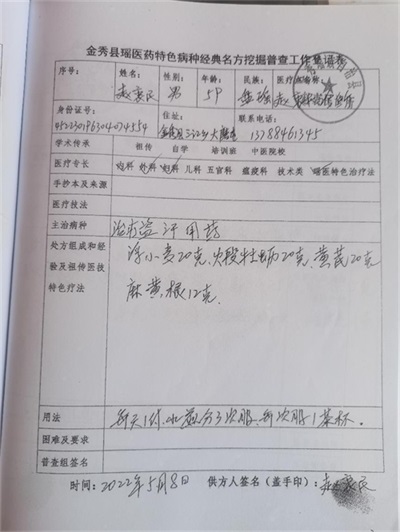 金秀县瑶医药特色病种经典名方挖掘普查工作登记表
序号： 姓名： 性别： 年龄： 民族： 医疗点名称：
男 59 盘瑶
身份证号： 住址： 联系电话：
金秀县三江乡 13788461345
学术传承 祖传 自学 培训班 中医院校
医疗专长 内科 外科 妇科 儿科 五官科 瘟疫科 技术类 瑶医特色治疗法
手抄本及来源
医疗技法
主治病种 治盗汗用药
处方组成和经验及祖传医技特色疗法
浮小麦20克、火煅牡蛎20克、黄芪20克
麻黄根12克
用法 每天1付，水煎分3次服、每次服1茶杯。
困难及要求
普查组签名
时间：2022年5月8日 供方人签名（盖手印）：